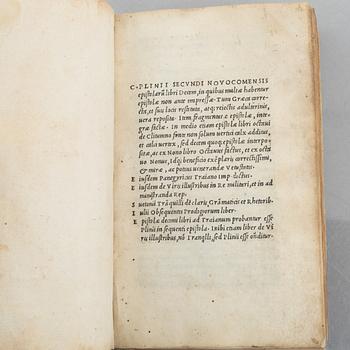 C·PLINII SECVNDI NOVOCOMENSIS
epistolarũ libri Decem, in quibus multæ habentur
epistolæ non ante impressæ. Tum Græca corre-
cta, et suis locis restituta, atq; reiectis adulterinis,
uera reposita. Item fragmentatæ epistolæ, inte-
græ factæ. In medio etiam epistolæ libri octaui
de Clitumno fonte non solum uertici calx additus,
et calci uertex, sed decem quoq; epistolæ interpo-
sitæ, ac ex Nono libro Octauus factus, et ex octa-
uo Nonus, Idq; beneficio exemplaris correctissimi,
et miræ, ac potius uenerandæ Vetustatis.
Eiusdem Panegyricus Traiano Imp. dictus.
Eiusdem de Viris illustribus in Re militari, et in ad
ministranda Rep.
Suetonii Trãquilli de claris Grãmaticis et Rhetorib.
Iulii Obsequentis Prodigiorum liber.
Epistolæ decimi libri ad Traianum probantur esse
Plinii in sequenti epistola. Inibi etiam liber de Vi
ris illustribus, nõ Tranqlli, sed Plinii esse onditur.